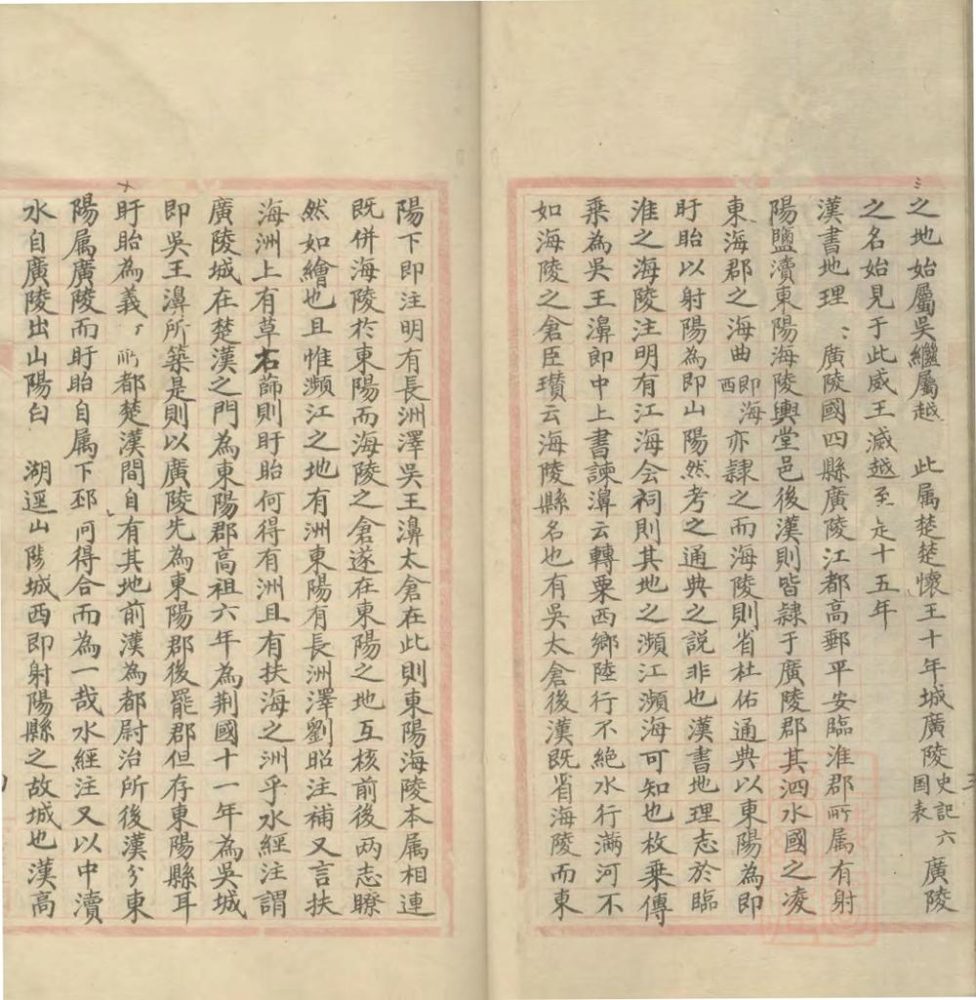 之地始屬吳繼屬越 此属楚楚懷王十年城廣陵史記六国表廣陵
之名始見于此威王滅越至是十五年
漢書地理〻廣陵國四縣廣陵江都高郵平安臨淮郡所属有射
陽鹽瀆東陽海陵輿堂邑後漢則皆隸于廣陵郡其泗水國之凌
東海郡之海曲即海西亦隸之而海陵則省杜佑通典以東陽為即
盱眙以射陽為即山陽然考之通典之説非也漢書地理志於臨
淮之海陵注明有江海会祠則其地之瀕江瀕海可知也枚乗傳
乗為吳王濞郎中上書諫濞云轉粟西鄉陸行不絶水行满河不
如海陵之倉臣瓉云海陵縣名也有吳太倉後漢既省海陵而東
陽下即注明有長洲澤吳王濞太倉在此則東陽海陵本属相連
既併海陵於東陽而海陵之倉遂在東陽之地互核前後两志瞭
然如繪也且惟瀕江之地有洲東陽有長洲澤劉昭注補又言扶
海洲上有草右篩則盱眙何得有洲且有扶海之洲乎水經注謂
廣陵城在楚漢之門為東陽郡高祖六年為荆國十一年為吳城
即吳王濞所築是則以廣陵先為東陽郡後罷郡但存東陽縣耳
盱眙為義〻所都楚漢間自有其地前漢為都尉治所後漢分東
陽属廣陵而盱眙自属下邳何得合而為一哉水經注又以中瀆
水自廣陵出山陽白 湖逕山陽城西即射陽縣之故城也漢高